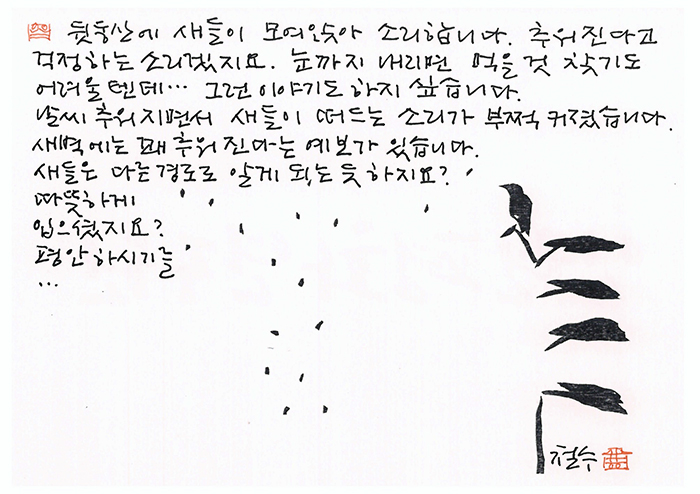 뒷동산에 새들이 모여앉아 소리합니다. 추워진다고
걱정하는 소리겠지요. 눈까지 내리면 먹을 것 찾기도
어려울텐데… 그런 이야기도 하지 싶습니다.
날씨 추워지면서 새들이 떠드는 소리가 부쩍 커졌습니다.
새벽에는 꽤 추워진다는 예보가 있습니다.
새들은 다른 경로로 알게 되는 듯 하지요?
따뜻하게
입으셨지요?
평안하시기를
…
철수